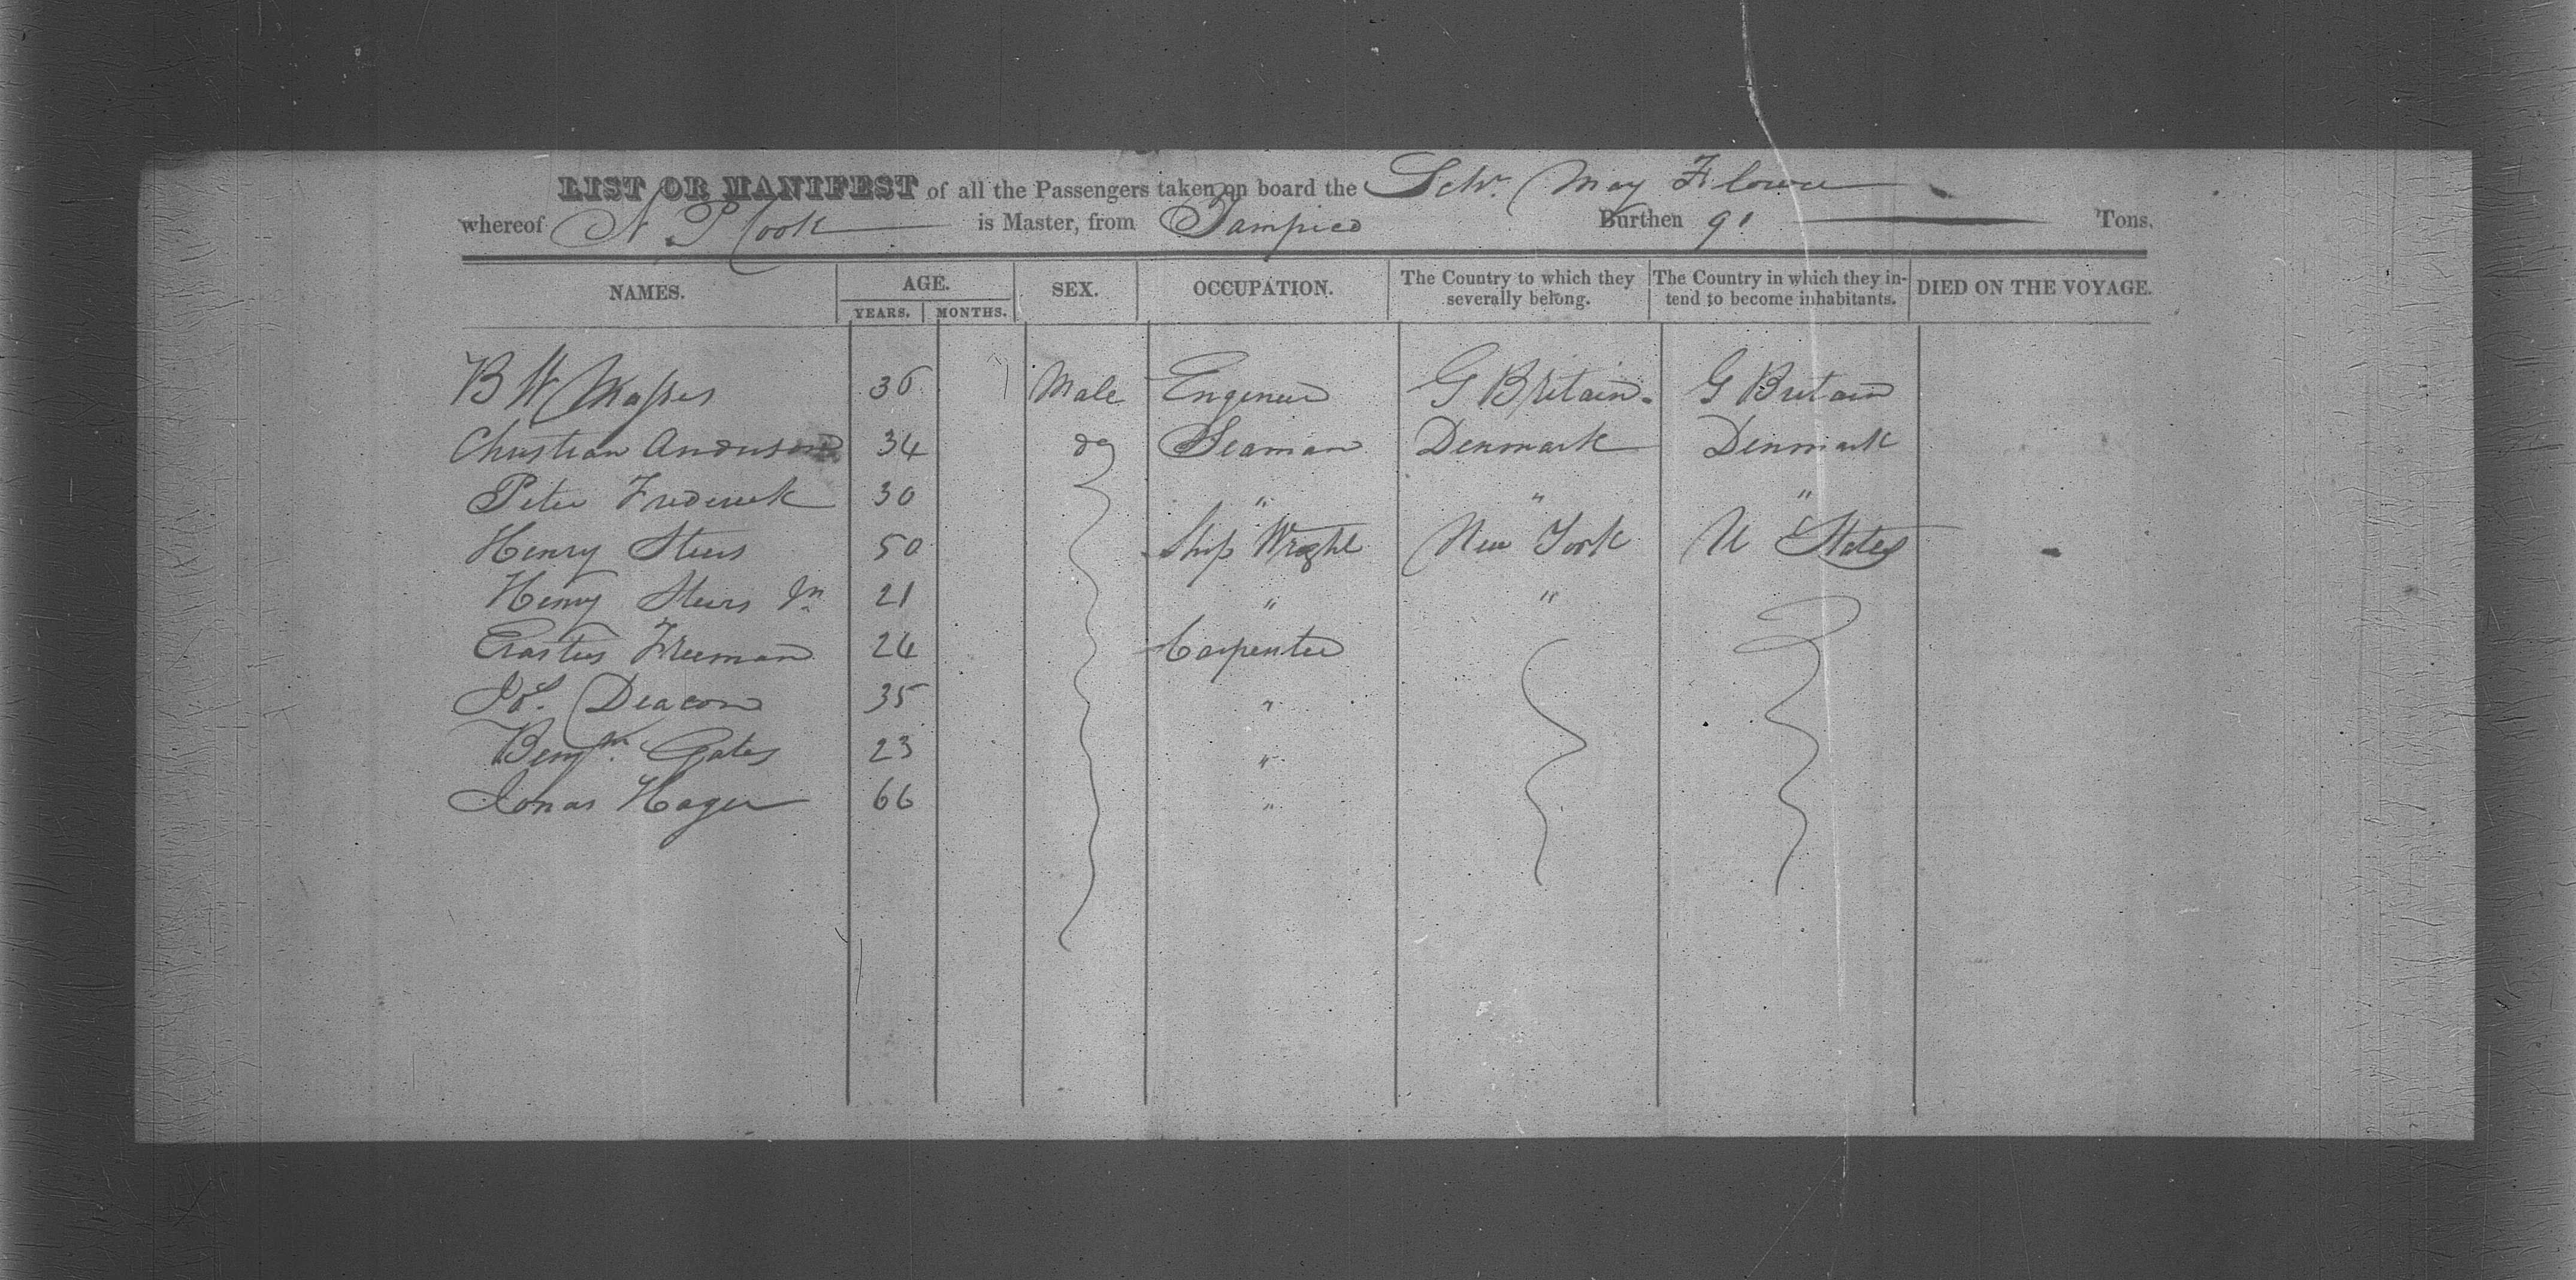 LIST OR MANIFEST of all the Passengers taken on board the Schr. May Flower
whereof N P Cook is Master, from Tampico Burthen 91 Tons.
NAMES. AGE. SEX. OCCUPATION. The Country to which they severally belong. The Country in which they intend to become inhabitants. DIED ON THE VOYAGE.
YEARS. MONTHS.
B W 36 Male Engineer G Britain. G Britain
Christian Anderson 34 do Seaman Denmark Denmark
Peter Frederick 30 " " "
Henry Steers 50 Ship Wright New York U States
Henry Steers Jr 21 " "
Erastus Freeman 24 Carpenter
Jos. Deacon 35 "
Benjn. Gates 23 "
Jonas Hager 66 "